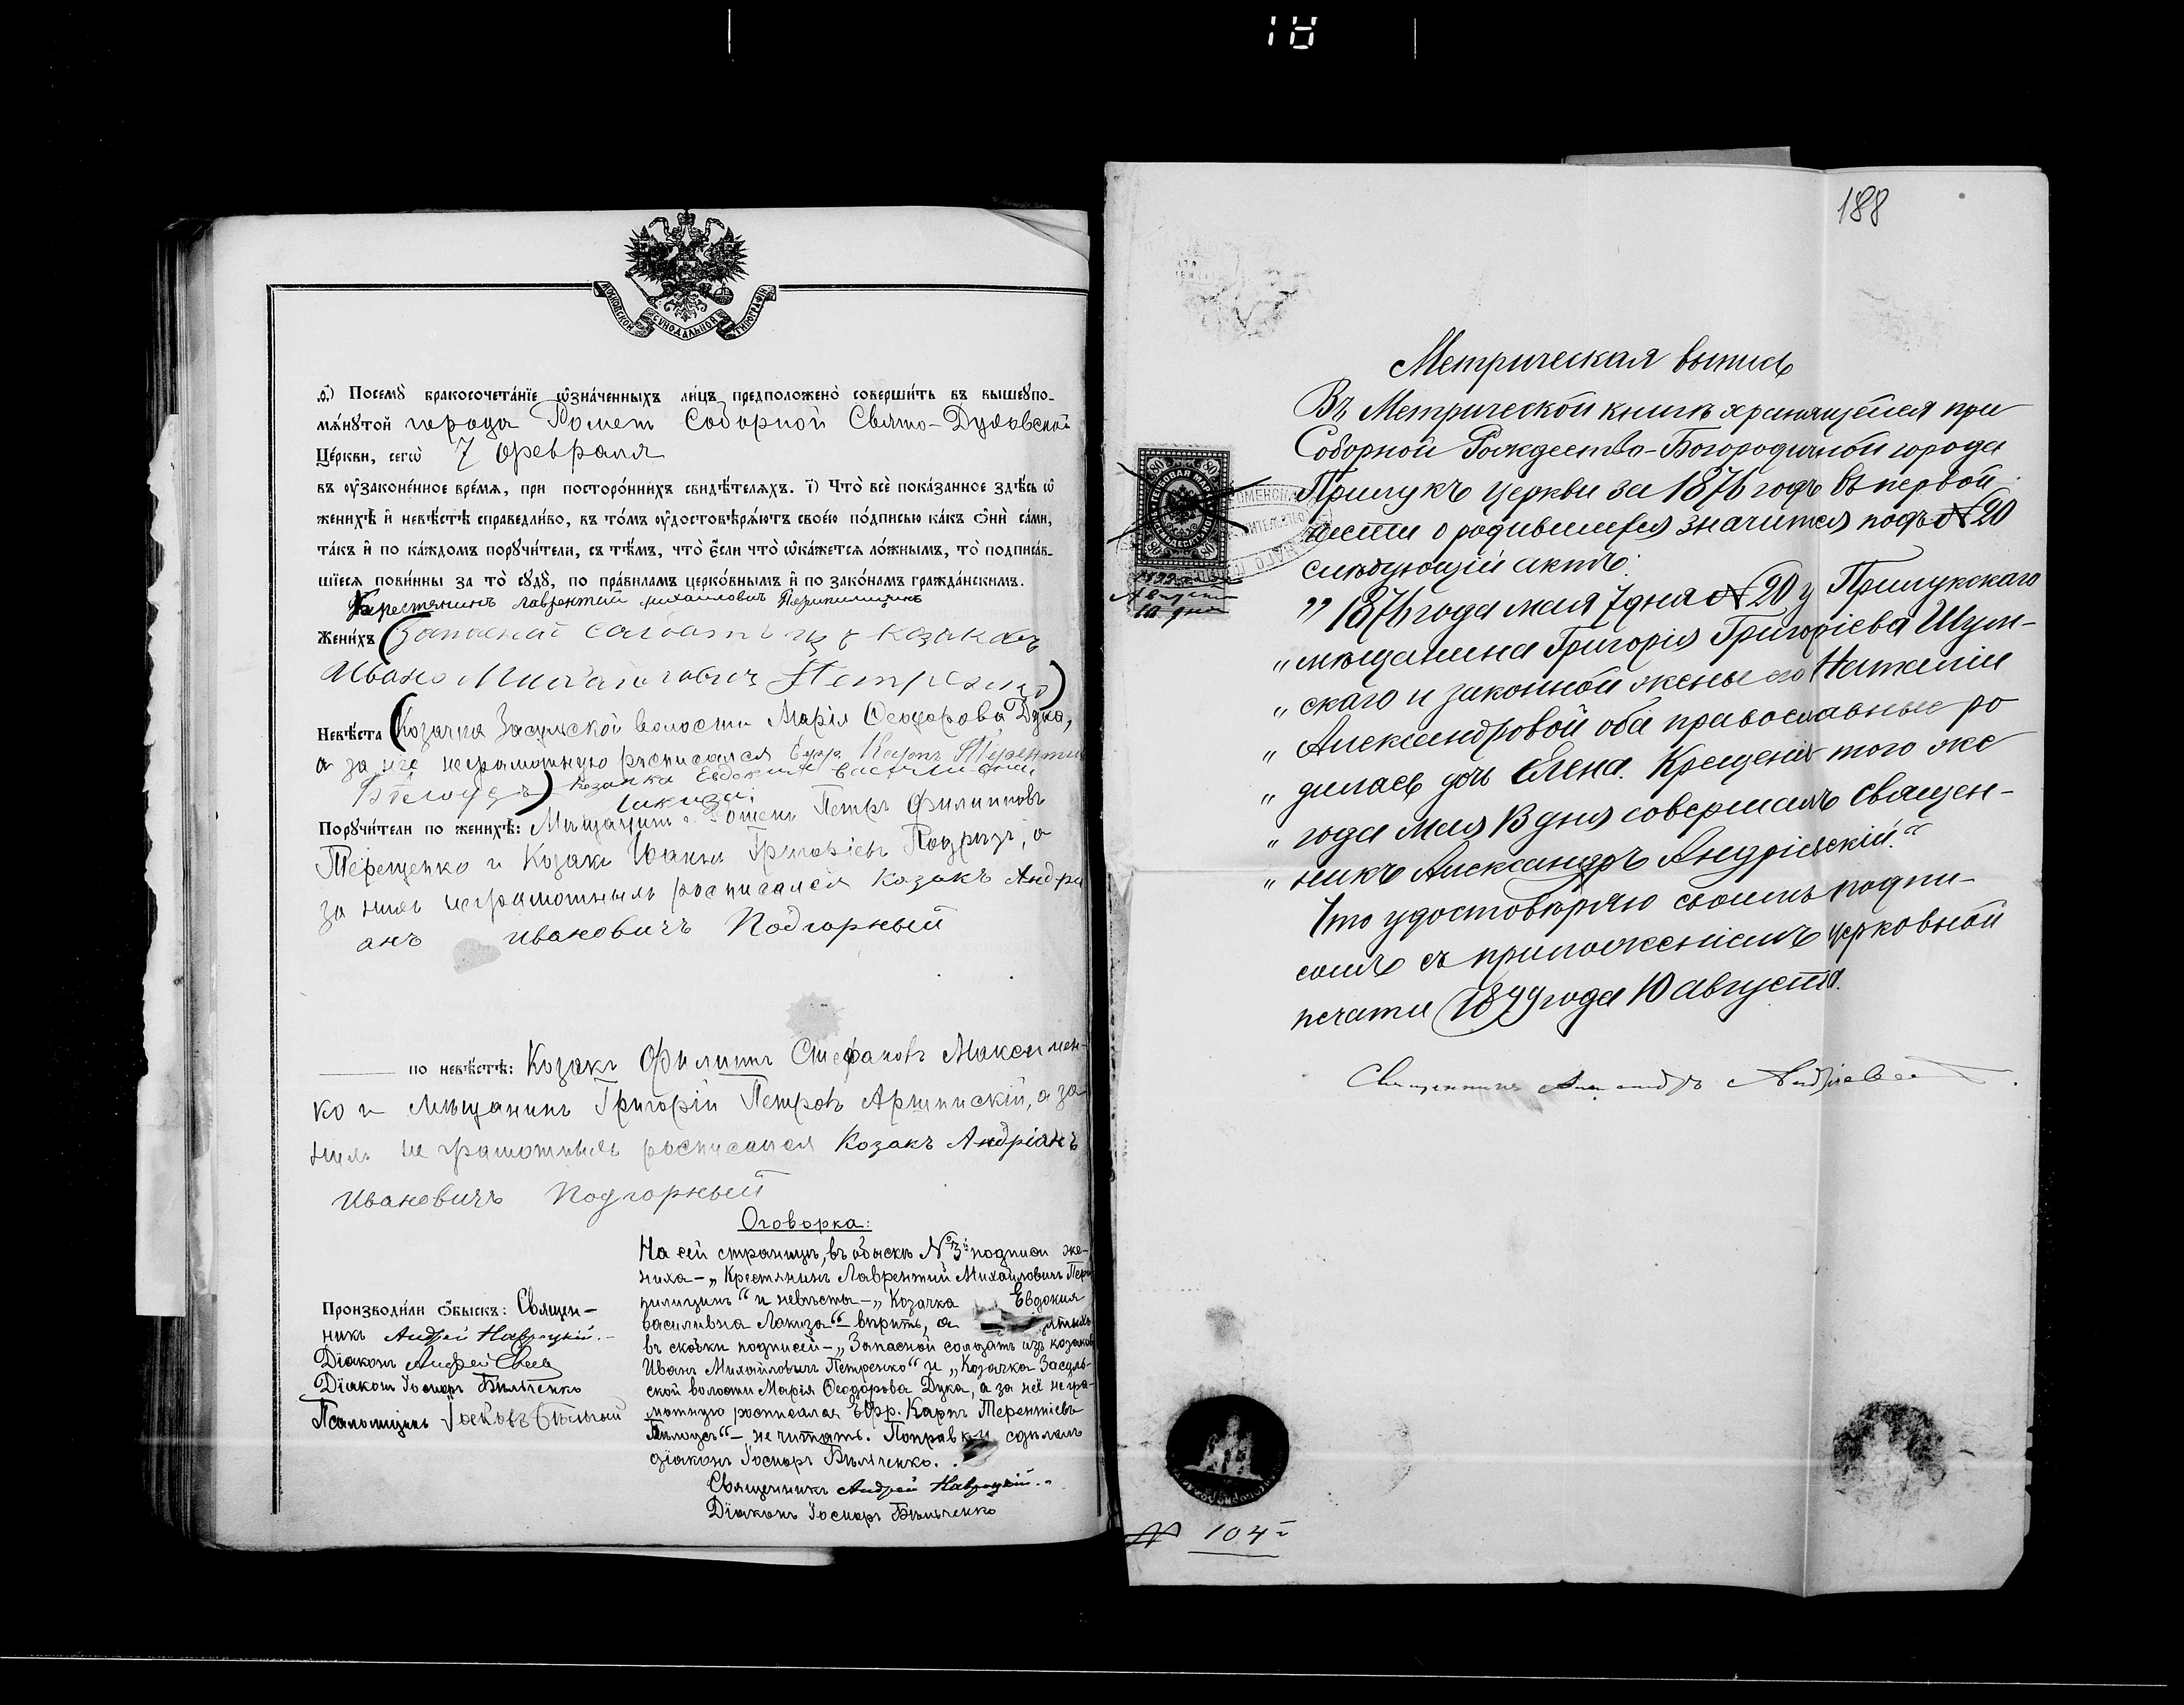 18
МОСКОВСКОЙ СѴНОДАЛЬНОЙ ТИПОГРАФІИ
.ѳ҃.) Посемꙋ̀ бракосочета́нїе ѡ҆зна́ченныхъ ли́цъ предположено̀ соверши́ть въ вышеꙋпо-
мѧ́нꙋтой города Ромен Соборной Свято-Духовской
Це́ркви, сегѡ̀ 7 февраля
въ ᲂу҆зако́ненное вре́мѧ, при посторо́ннихъ свидѣ́телѧхъ. і҃) Что̀ всѐ пока́занное здѣ́сь ѡ҆
женихѣ̀ и҆ невѣ́стѣ справедли́во, въ то́мъ ᲂу҆достовѣрѧ́ютъ свое́ю по́дписью ка́къ ѻ҆нѝ са́ми,
та́къ и҆ по ка́ждомъ порꙋчи́тели, съ тѣ́мъ, что̀ є҆́сли что̀ ѡ҆ка́жетсѧ ло́жнымъ, то̀ подписа́в-
шїесѧ пови́нны за то̀ сꙋдꙋ̀, по пра́виламъ церко́внымъ и҆ по зако́намъ гражда́нскимъ.
Крестянинъ Лаврентий михаилович
Жени́хъ (запасной салдатъ из козаков
Ивано Михайлович Петренко)
Невѣ́ста (Козачка Засульской волости Марія Ѳеодорова Дука,
а за нее неграмотную расписался Ефр. Карпъ Терентіев
Бѣлоусъ) козачка Евдокия василивна
Лакиза:
Порꙋчи́тели по женихѣ̀: Мѣщанинъ г. Ромен Петръ Филипповъ
Терещенко и Козакъ Іоанъ Григоріевъ Подрѣзъ, а
за нихъ неграмотныхъ росписался Козакъ Андри
анъ Ивановичъ Подгорный
по невѣ́стѣ: Козакъ Филиппъ Стефановъ Максимен-
ко и Мѣщанинъ Григорій Петровъ а за
нихъ не грамотныхъ росписался Козакъ Андріанъ
Ивановичъ Подгорный
Производи́ли ѻ҆́быскъ: Священ-
никъ Андрей Навроцкій.
Діаконъ Андрей
Діаконъ Іосифъ Бѣльченко
Псаломщикъ Іосифъ
Оговорка:
На сей страницѣ, въ обыскѣ № 3й подписи же-
ниха – „Крестянинъ Лаврентий Михайловичъ
и невѣсты – „Козачка Евдокия
василивна Лакиза“ – вѣрить, а
въ скобки подписей – „Запасной солдатъ изъ козаков
Иванъ Михайловичъ Петренко“ и „Козачка Засуль-
ской волости Марія Ѳеодорова Дука, а за неё негра-
мотную росписался Ефр. Карпъ Терентіевъ
Бѣлоусъ“ – не читать. Поправки сдѣлалъ
діаконъ Іосифъ Бѣльченко.
Священникъ Андрей Навроцкій.
Діаконъ Іосифъ Бѣльченко
188
Метрическая выпись
Въ Метрической книгѣ хранящейся при
Соборной Рождество-Богородичной города
Прилукъ церкви за 1876 годъ въ первой
части о родившихся значится подъ № 20
слѣдующій актъ:
„1876 года мая 7 дня № 20 у Прилукскаго
„ мѣщанина Григорія Григоріева Шум-
„ скаго и законной жены его Наталіи
„ Александровой оба православные ро
„ дилась дочь Елена. Крещеніе того же
„ года мая 13 дня совершалъ священ-
„ никъ Александръ Андріевскій.“
Что удостовѣряю своимъ подпи-
сомъ съ приложеніемъ церковной
печати 1899 года 10 августа.
Священникъ Александръ Андріевскій
80 80
1899
Августа
10 дня
№ 104